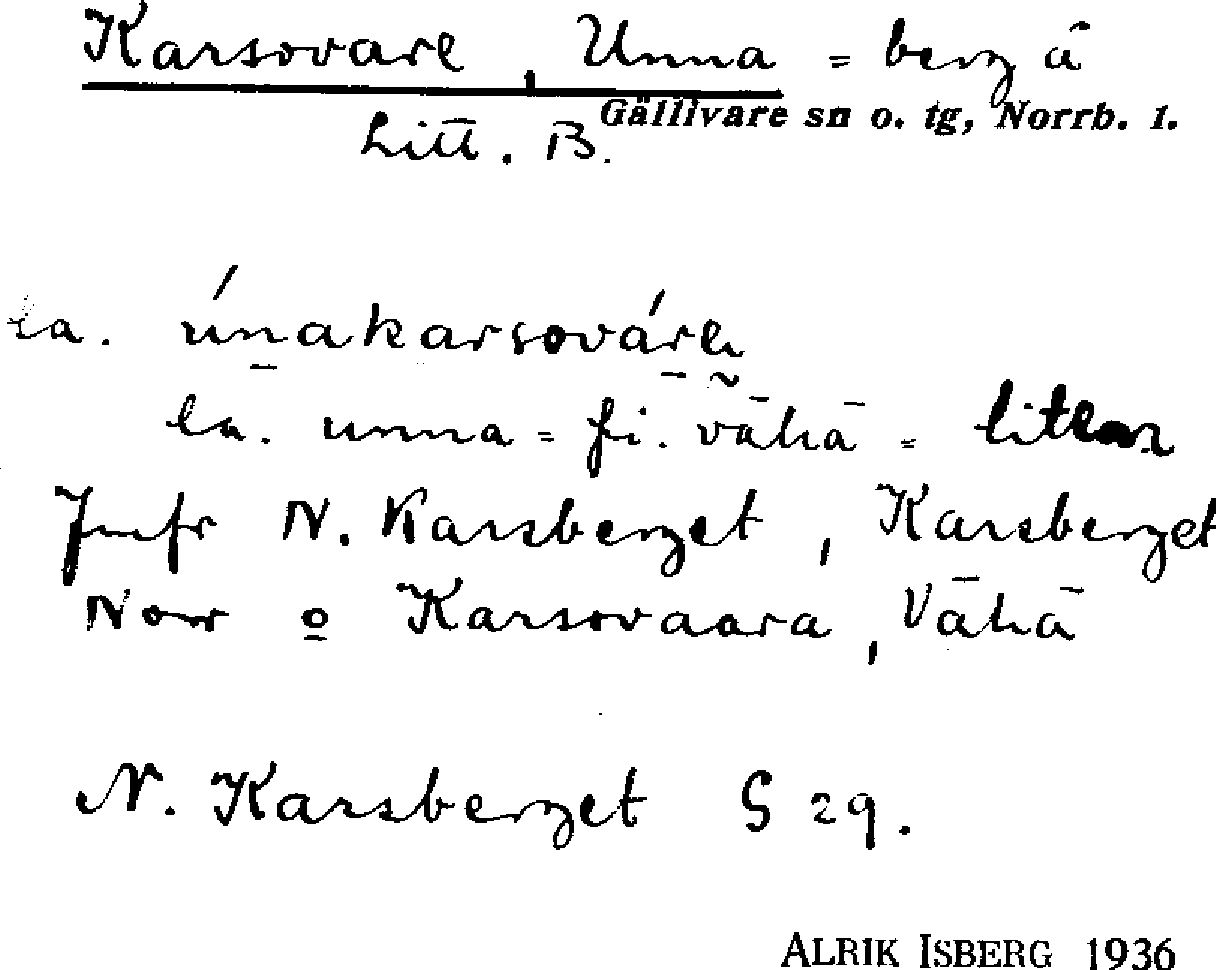 Karsovare, Unna = berg ä
Gällivare sn o. tg, Norrb. l.
Litt. B.
la. únakarsováre
la. unna = fi. vähä = liten
Jmfr N. Karsberget, Karsberget
Norr o Karsovaara, Vähä
N. Karsberget S 29.
ALRIK ISBERG 1936